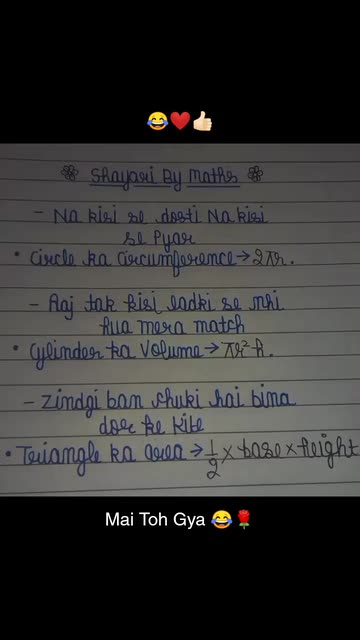 😂❤️👍🏻
Shayari By Maths
- Na kisi se dosti Na kisi
se Pyar
• Circle ka Circumference → 2πr.
- Aaj tak kisi ladki se nhi
hua mera match
• Cylinder ka Volume → πr²h.
- Zindgi ban chuki hai bina
dor ke kite
• Triangle ka area → 1/2 × base × height
Mai Toh Gya 😂🌹